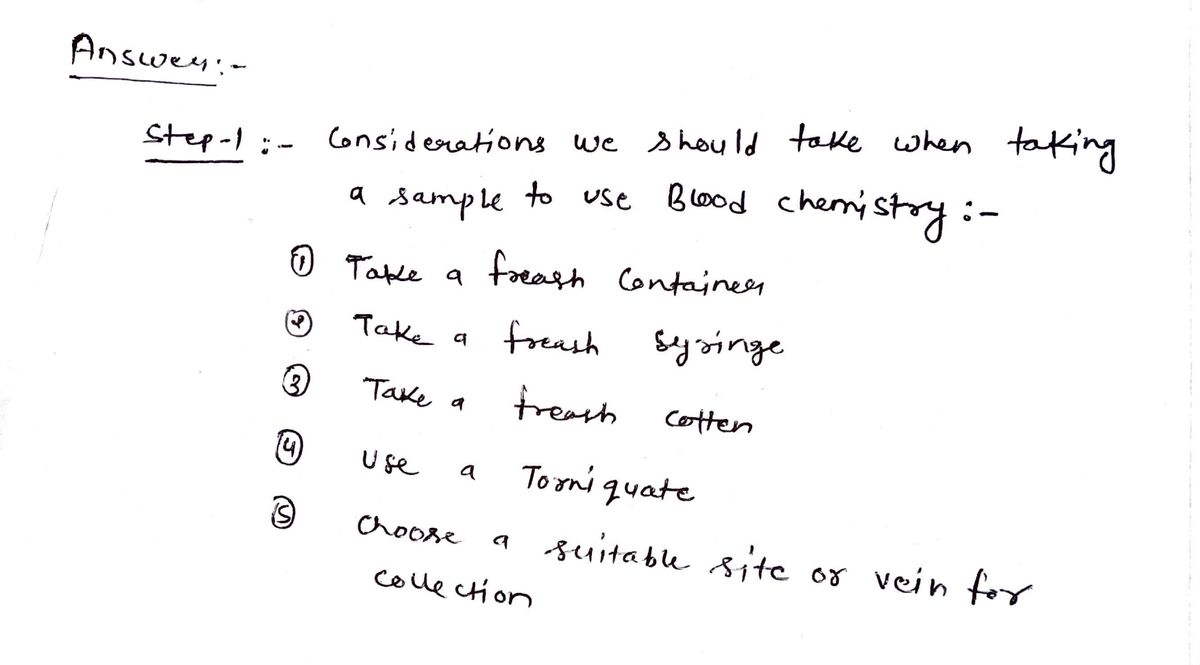 Answer:-
Step-1 :- Considerations we should take when taking
a sample to use Blood chemistry :-
① Take a freash Container
② Take a freash syringe
③ Take a freash cotten
④ Use a Torniquate
⑤ Choose a suitable site or vein for
collection